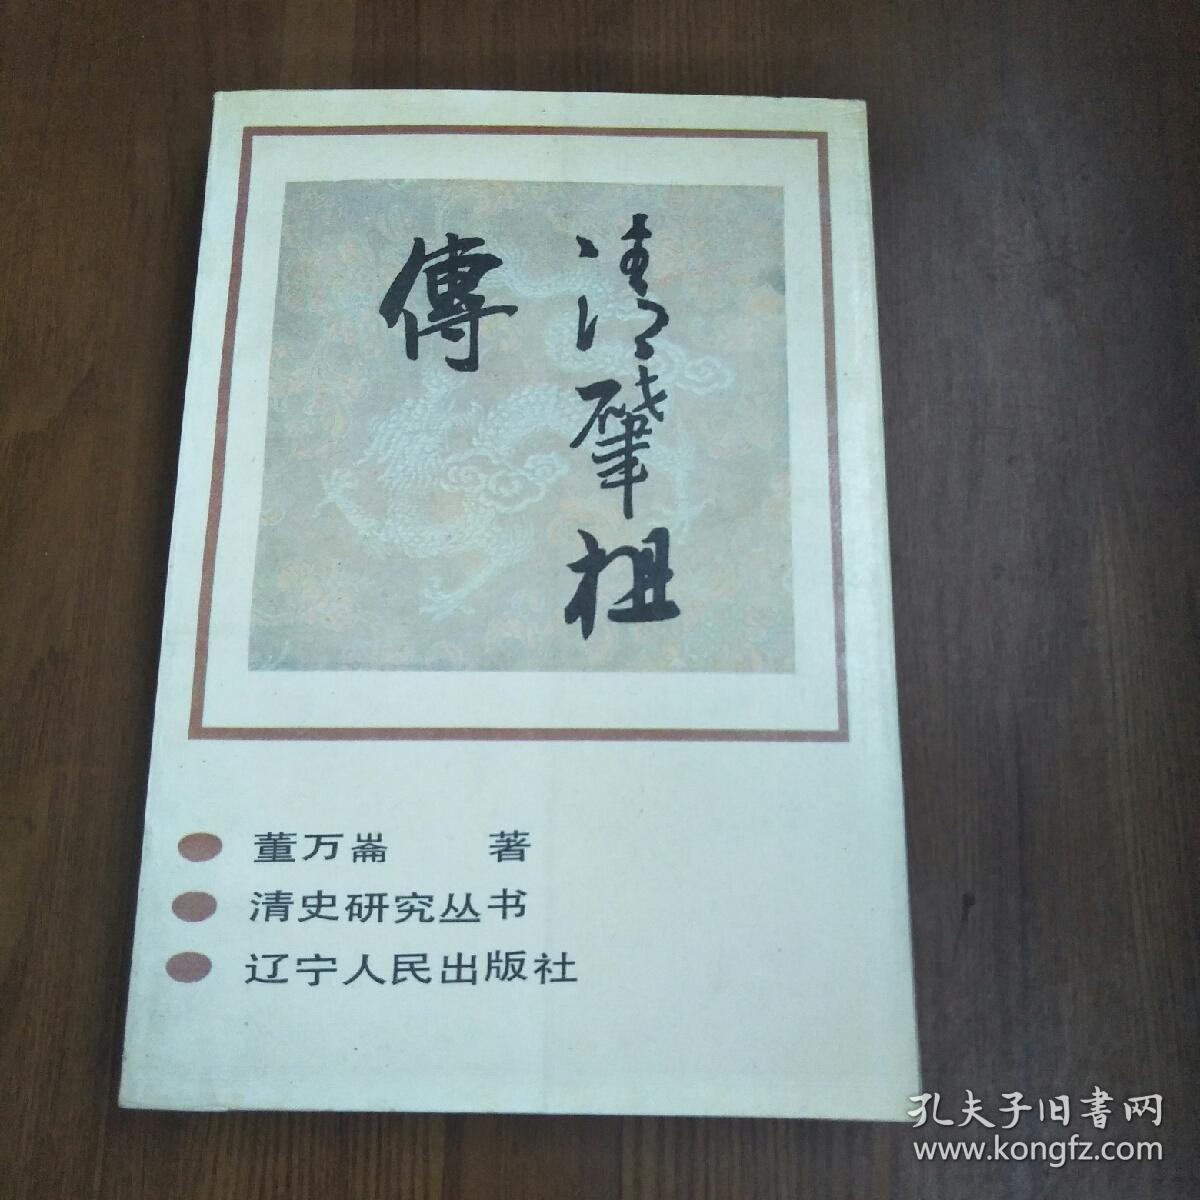 清肇祖
傳
董万崙 著
清史研究丛书
辽宁人民出版社
孔夫子旧書网
www.kongfz.com